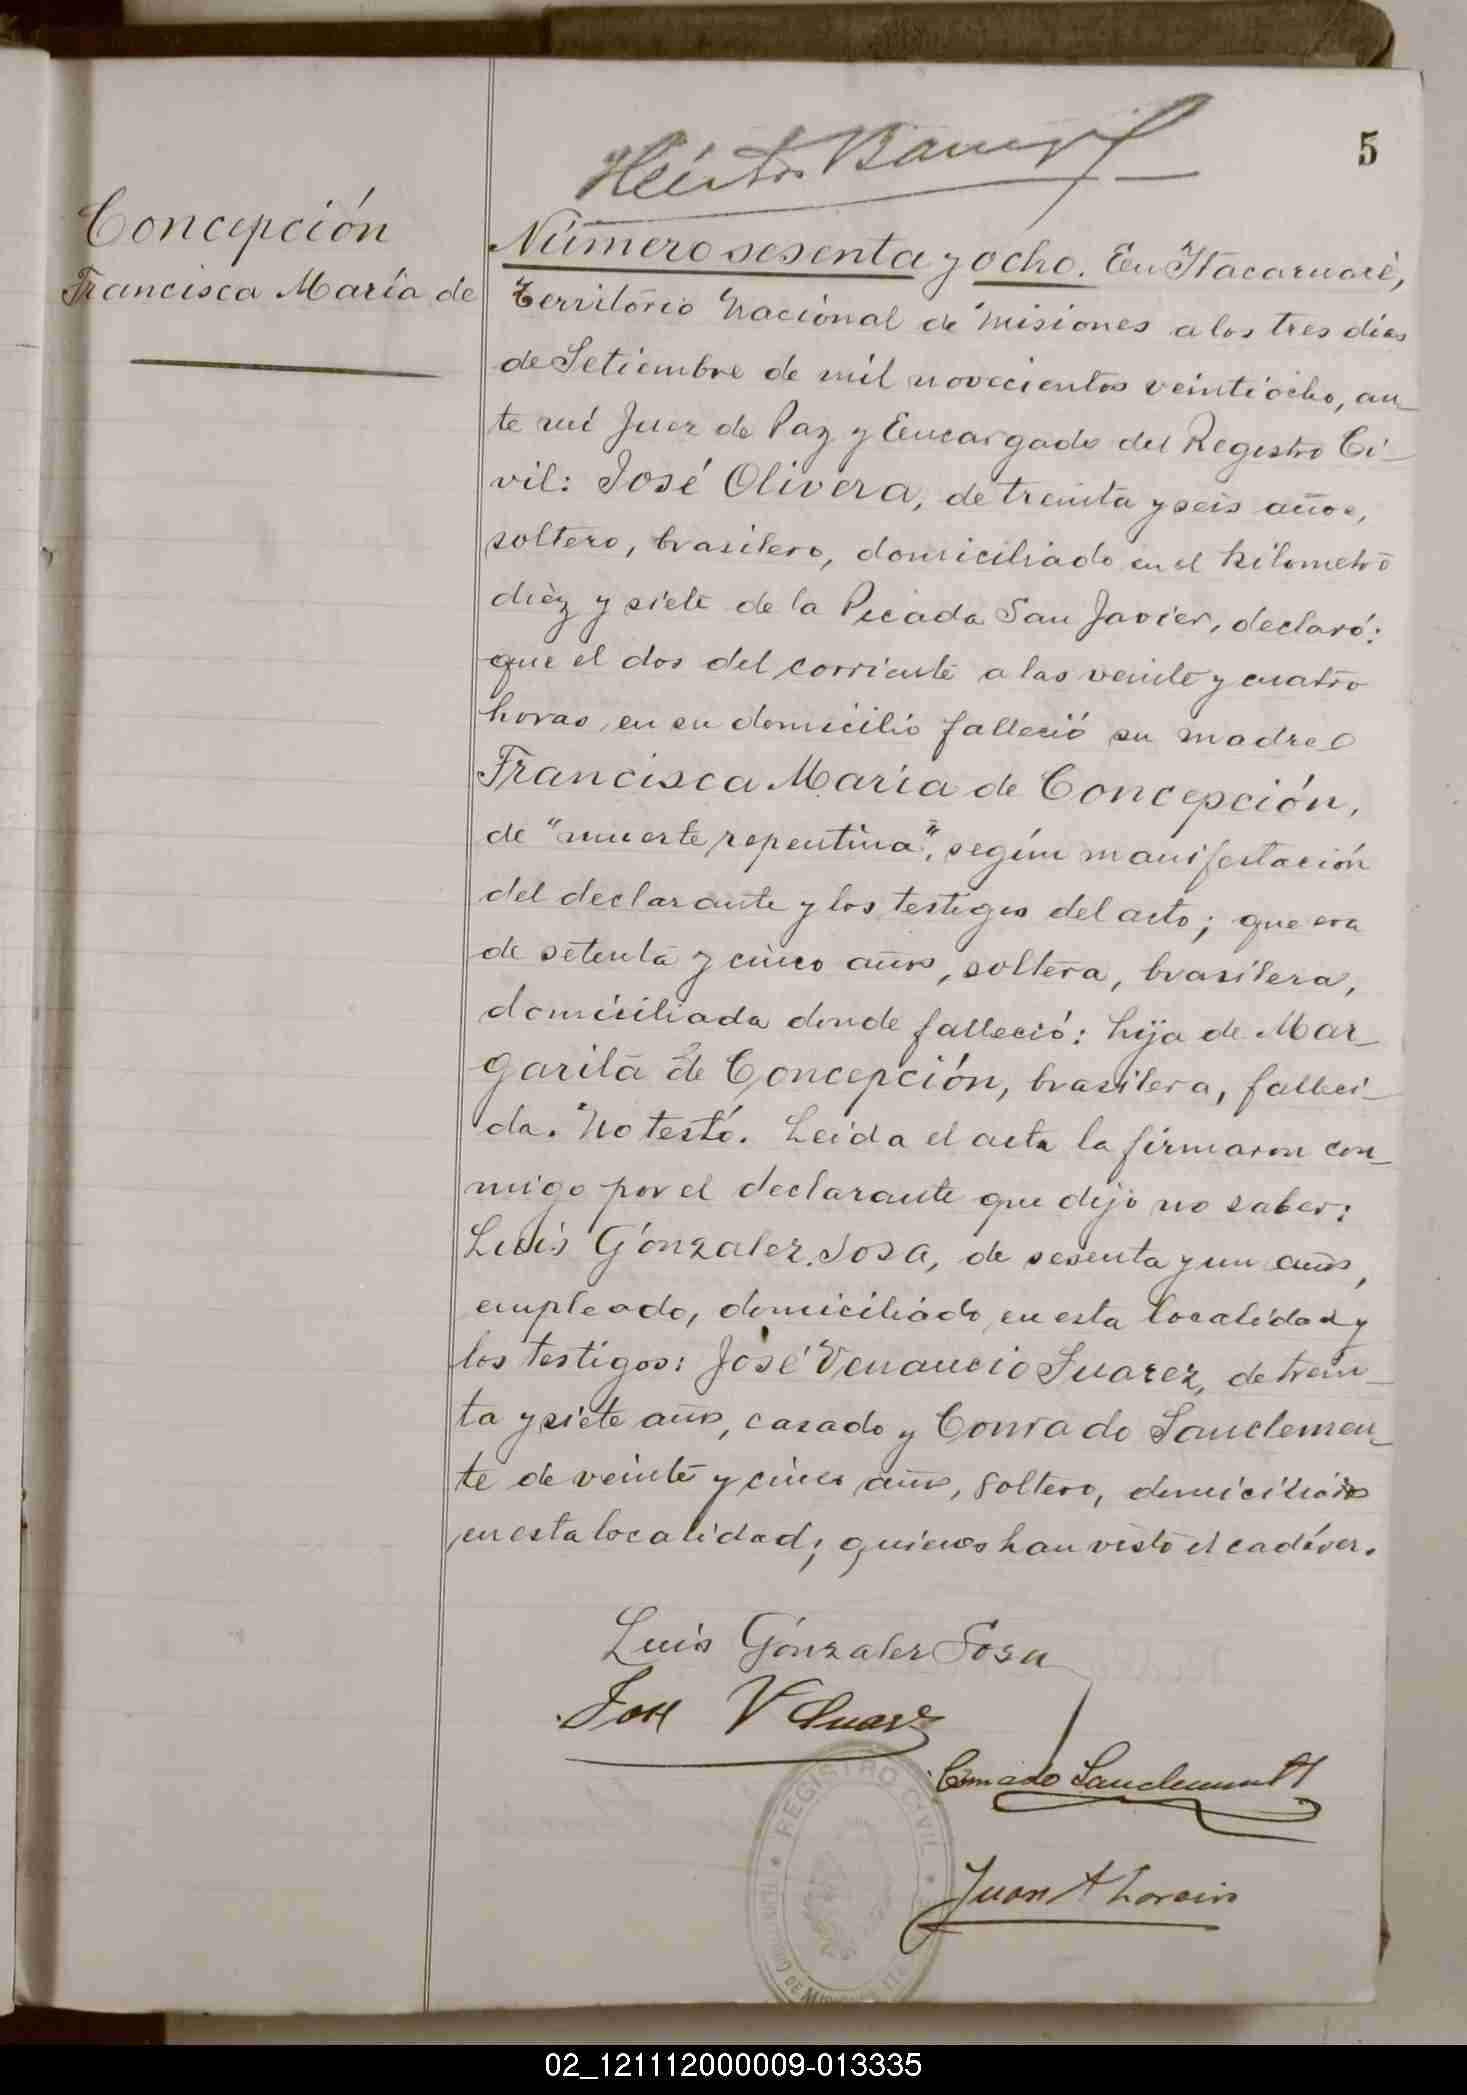 5
Concepción
Francisca María de
Número sesenta y ocho. En Itacaruaré,
Territorio Nacional de Misiones a los tres días
de Setiembre de mil novecientos veintiocho, an-
te mí Juez de Paz y Encargado del Registro Ci-
vil: José Olivera, de treinta y seis años,
soltero, brasilero, domiciliado en el kilometro
diéz y siete de la Picada San Javier, declaró:
que el dos del corriente a las veinte y cuatro
horas, en su domicilio falleció su madre
Francisca María de Concepción,
de "muerte repentina", según manifestación
del declarante y los testigos del acto; que era
de setenta y cinco años, soltera, brasilera,
domiciliada donde falleció: hija de Mar-
garita de Concepción, brasilera, falleci-
da. No testó. Leída el acta la firmaron con-
migo por el declarante que dijo no saber:
Luis Gónzalez Sosa, de sesenta y un años,
empleado, domiciliado en esta localidad y
los testigos: José Venancio Suarez, de trein-
ta y siete años, casado y Conrado Sanclemen-
te de veinte y cinco años, soltero, domiciliados
en esta localidad; quienes han visto el cadáver.
Luis Gónzalez Sosa
José V Suarez
Conrado Sanclemente
Juan A
REGISTRO CIVIL
02_121112000009-013335